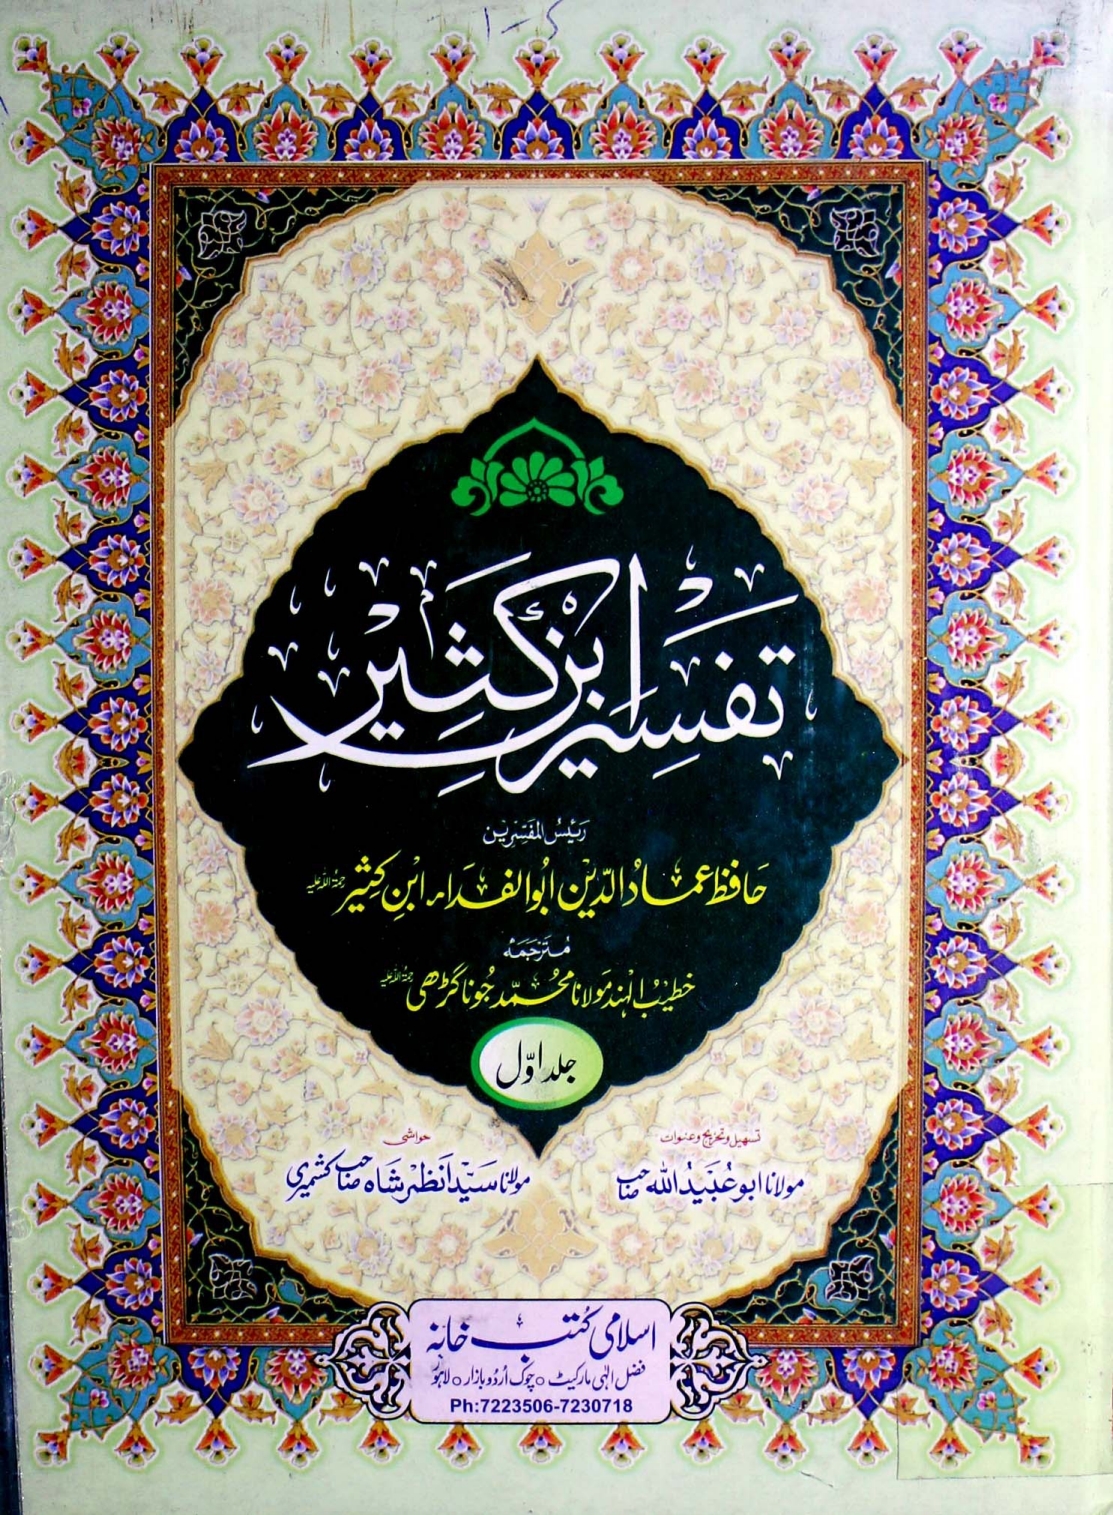 ۱-۵
تفسیر ابن کثیر
رئیس المفسرین
حافظ عماد الدین ابوالفداء ابن کثیر رحمۃ اللہ علیہ
مترجمہ
خطیب الہند مولانا محمد جوناگڑھی رحمۃ اللہ علیہ
جلد اوّل
تسہیل و تخریج و عنوانات
مولانا ابو عبید اللہ صاحب
حواشی
مولانا سید انظر شاہ صاحب کشمیری
اسلامی کتب خانہ
فضل الٰہی مارکیٹ ○ چوک اُردو بازار ○ لاہور
Ph:7223506-7230718